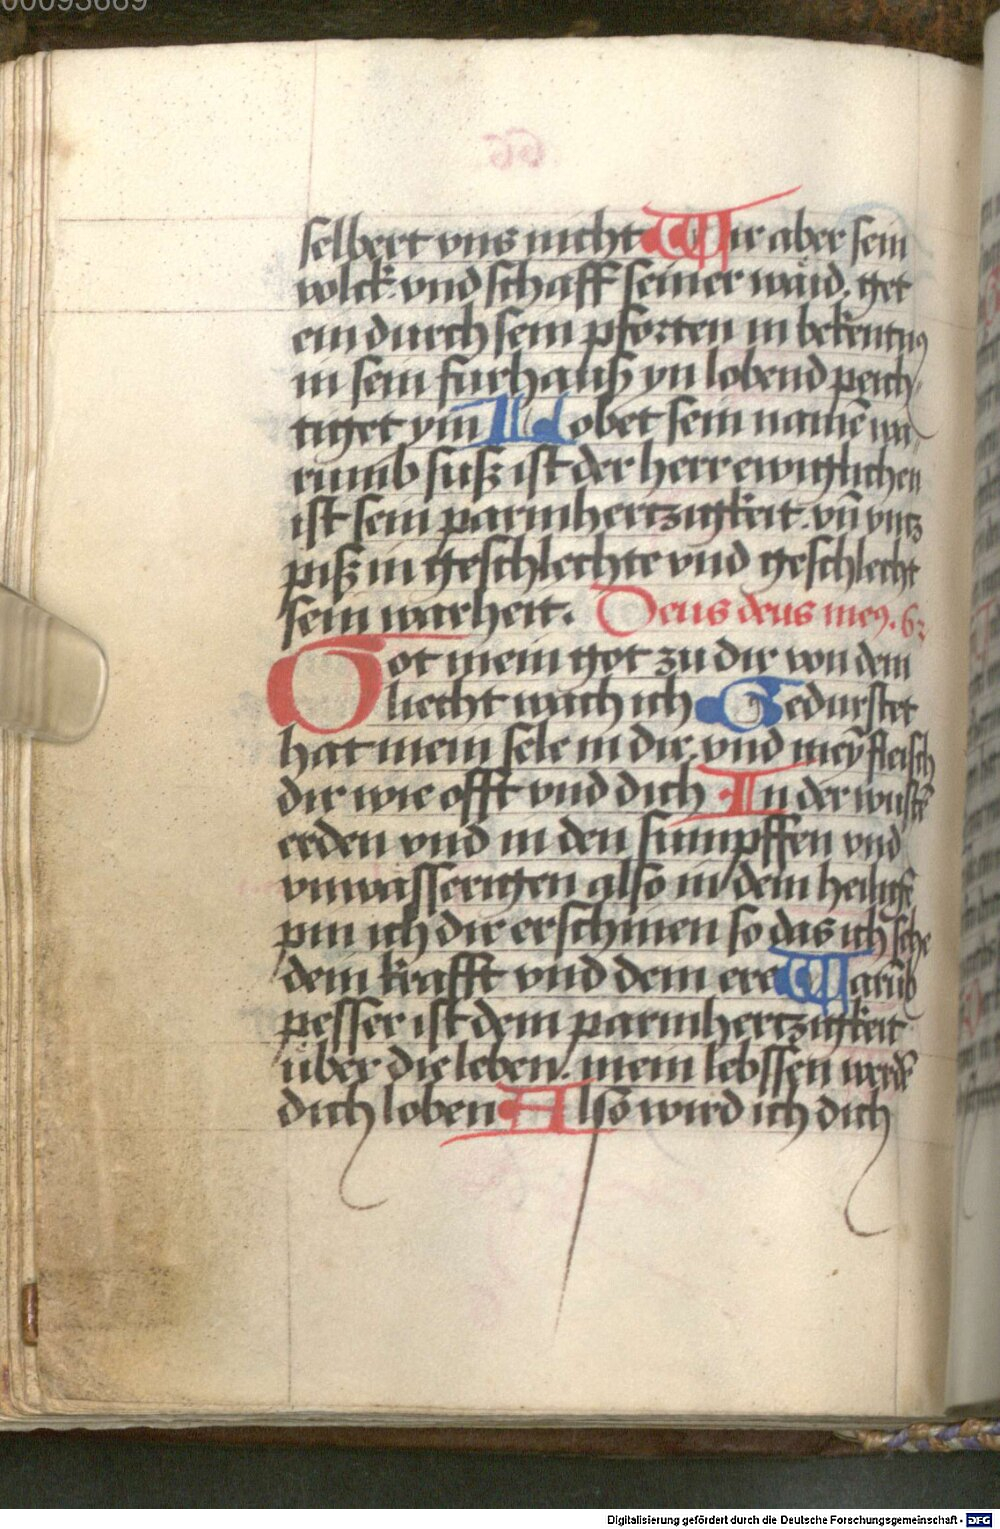 00093669
selbert vns nicht Wir aber sein
volck. vnd schaff seiner waid. get
ein durch sein pforten in bekentnꝰ
in sein furhauß yn lobend peich⸗
tiget ym Lobet sein namē wa⸗
rumb suß ist der herr ewiglichen
ist sein parmhertzigkeit. vn̄ vntz
piß in geschlechte vnd geschlecht
sein warheit. Deus deus meꝰ. 62
Got mein got zu dir von dem
liecht wach ich Gedurstet
hat mein sele in dir. vnd mey̅ fleisch
dir wie offt vnd dich In der wustē
erden vnd in den sumpffen vnd
vnwasserigen also in dem heiligē
pin ich dir erschinen so das ich sehe
dein krafft vnd dein ere Warūb
pesser ist dein parmhertzigkeit
über die leben. mein lebssen werdē
dich loben Also wird ich dich
Digitalisierung gefördert durch die Deutsche Forschungsgemeinschaft - DFG